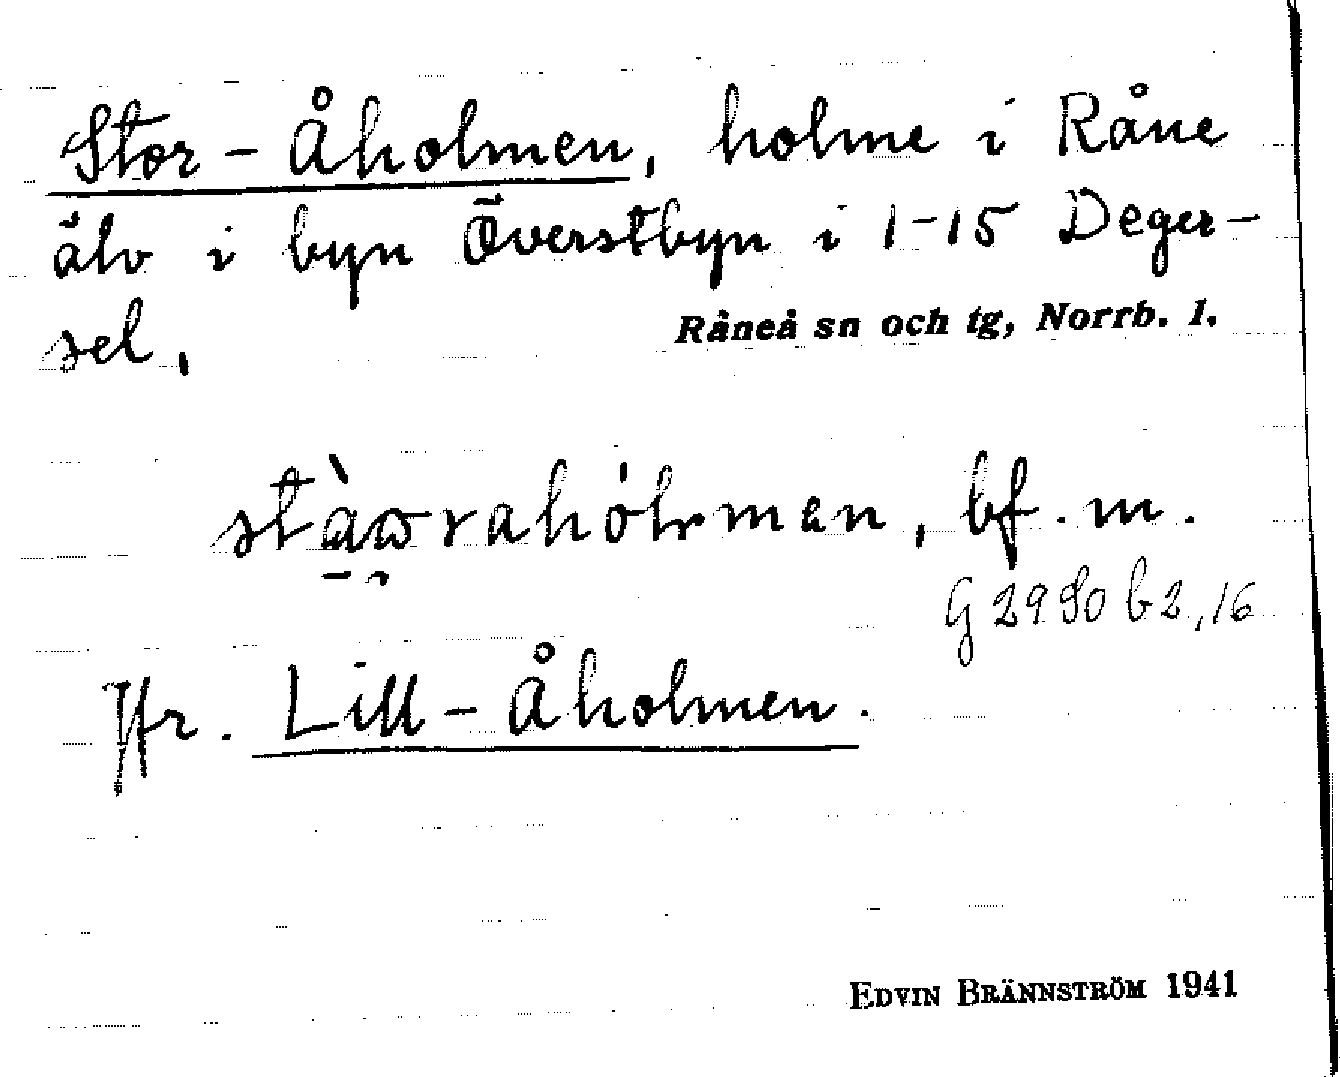 Stor-Åholmen, holme i Råne
älv i byn Överstbyn i 1-15 Deger-
sel,
Råneå sn och tg, Norrb. l.
bf. m.
G 2950 b2, 16
Jfr. Lill-Åholmen.
EDVIN BRÄNNSTRÖM 1941